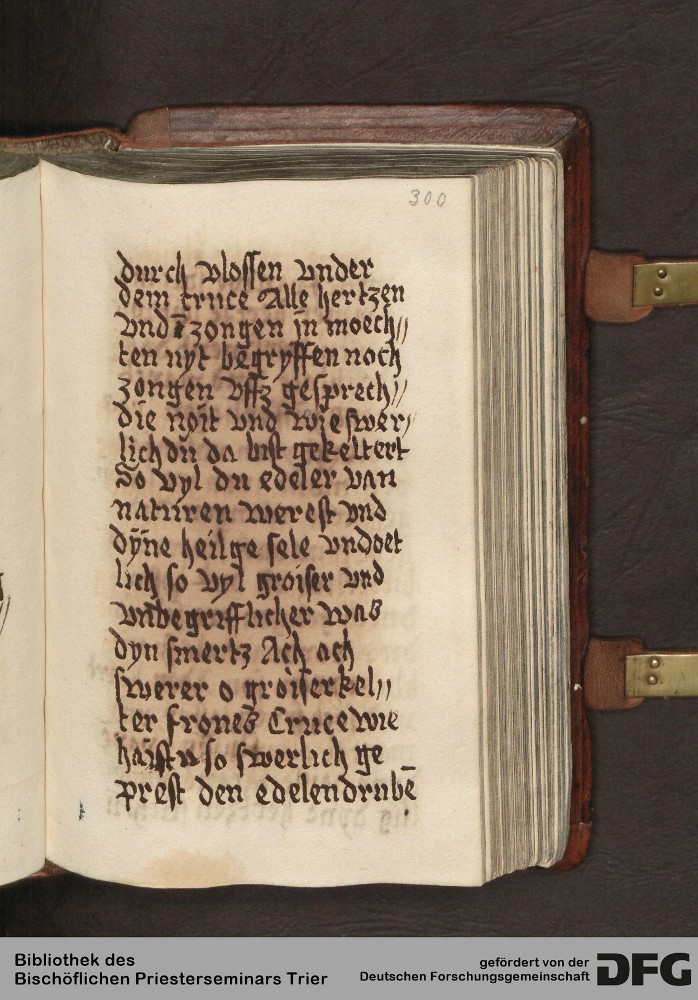 300
durch vlossen vnder
dem cruce Alle hertzen
vnd zongen in moech//
ten nyt begryffen noch
zongen vsſz gesprech//
die noit vnd wie swer/
lich du da bist gekeltert
So vyl du edeler van
naturen werest vnd
dyne heilge sele vndoet
lich so vyl groiser vnd
vnbegrifflicher was
dyn smertz Ach ach
swerer o groiser kel//
ter frones Cruce wie
haistu so swerlich ge
prest den edelen drubē
Bibliothek des
Bischöflichen Priesterseminars Trier
gefördert von der
Deutschen Forschungsgemeinschaft
DFG